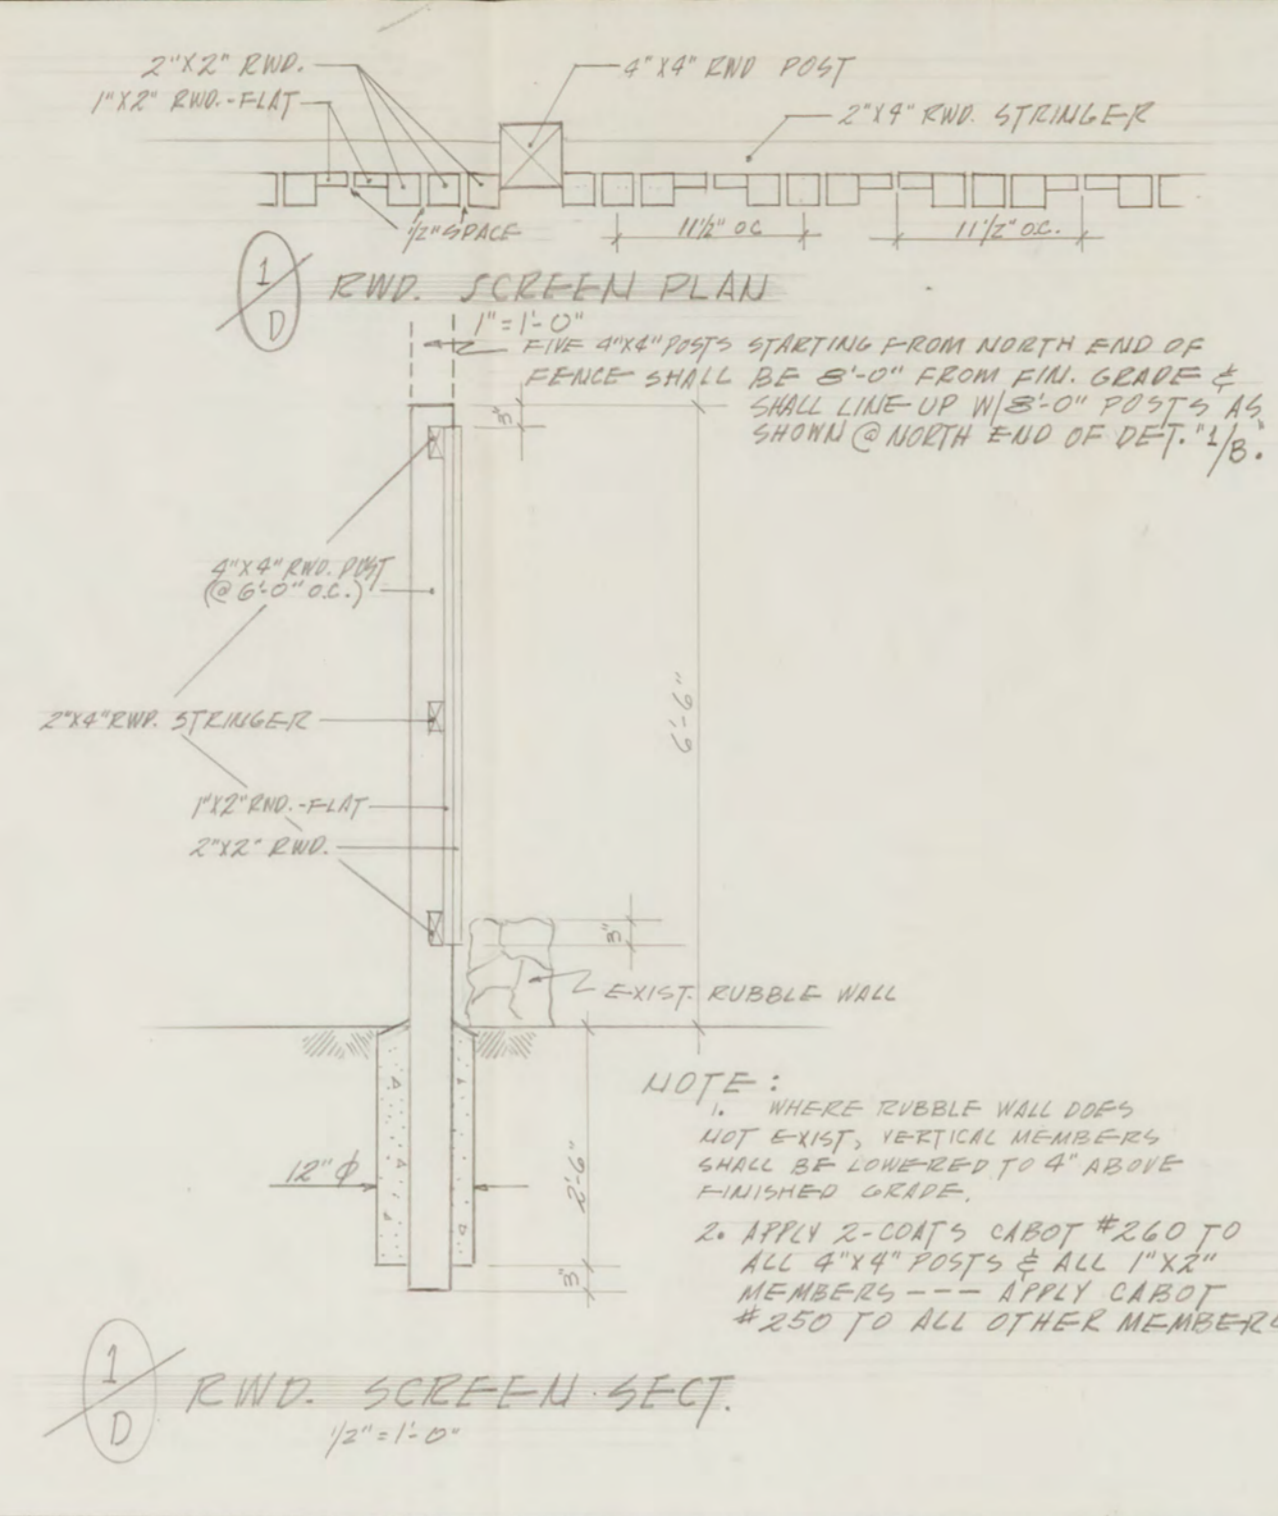 2"X2" RWD.
1"X2" RWD.-FLAT
4"X4" RWD POST
2"X4" RWD. STRINGER
1/2" SPACE
11 1/2" OC
11 1/2" O.C.
1
D
RWD. SCREEN PLAN
1"=1'-0"
FIVE 4"X4" POSTS STARTING FROM NORTH END OF
FENCE SHALL BE 8'-0" FROM FIN. GRADE &
SHALL LINE UP W/8'-0" POSTS AS
SHOWN @ NORTH END OF DET. "1/B."
3"
4"X4" RWD. POST
(@ 6'-0" O.C.)
6'-6"
2"X4" RWD. STRINGER
1"X2" RWD.-FLAT
2"X2" RWD.
3"
EXIST. RUBBLE WALL
NOTE:
1. WHERE RUBBLE WALL DOES
NOT EXIST, VERTICAL MEMBERS
SHALL BE LOWERED TO 4" ABOVE
FINISHED GRADE.
12" ϕ
2'-6"
3"
2. APPLY 2-COATS CABOT #260 TO
ALL 4"X4" POSTS & ALL 1"X2"
MEMBERS --- APPLY CABOT
#250 TO ALL OTHER MEMBERS
1
D
RWD. SCREEN SECT.
1/2"=1'-0"